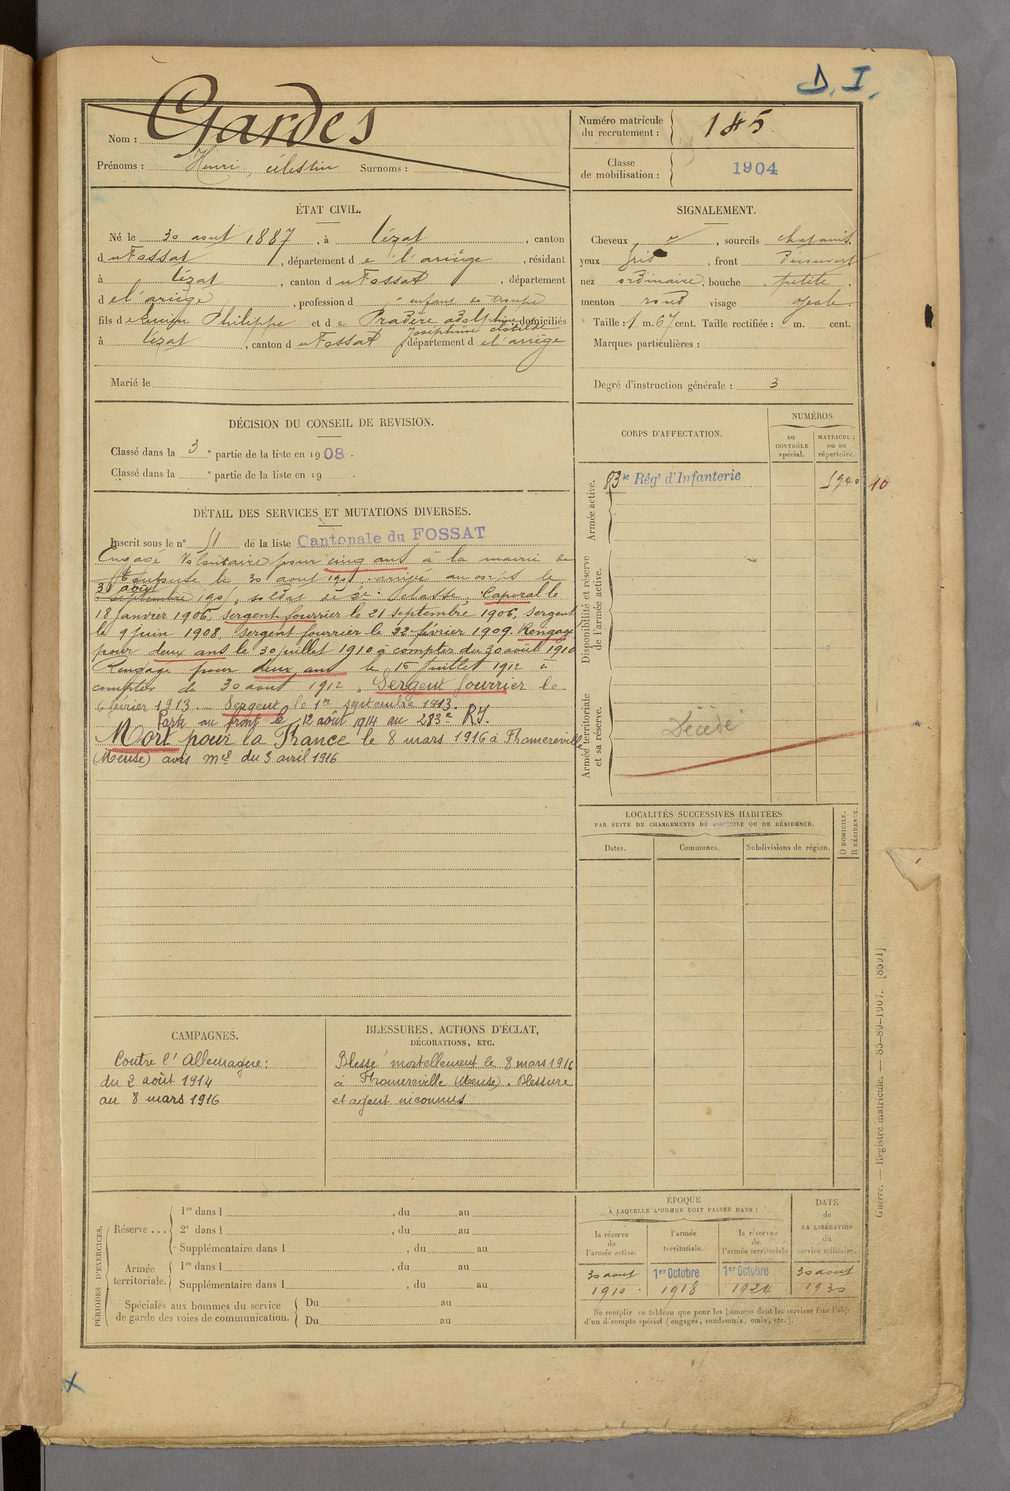 D. I.
Nom : Gardes
Prénoms : Henri, célestin Surnoms :
Numéro matricule
du recrutement : 145
Classe
de mobilisation : 1904
ÉTAT CIVIL.
Né le 30 aout 1887, à Lézat, canton
du Fossat, département de l'ariège, résidant
à Lézat, canton du Fossat, département
de l'ariège, profession d enfant de troupe
fils de Philippe et de Pradère adolphine domiciliés
Joséphine clotilde
à Lézat, canton du Fossat, département de l'ariège
Marié le
SIGNALEMENT.
Cheveux , sourcils chatains
yeux gris, front Découvert
nez ordinaire, bouche petite
menton rond visage ovale.
Taille : 1 m. 67 cent. Taille rectifiée : m. cent.
Marques particulières :
Degré d'instruction générale : 3
DÉCISION DU CONSEIL DE REVISION.
Classé dans la 3e partie de la liste en 1908.
Classé dans la e partie de la liste en 19 .
DÉTAIL DES SERVICES ET MUTATIONS DIVERSES.
Inscrit sous le n° 11 de la liste Cantonale du FOSSAT
Engagé Volontaire pour cinq ans à la mairie de
le 30 aout 1905, arrivé au corps le
30 août
septembre 1905, soldat de 2e classe, Caporal le
18 janvier 1906, sergent fourrier le 21 septembre 1906, Sergent
le 9 juin 1908, Sergent fourrier le 22 février 1909. Rengagé
pour deux ans le 30 juillet 1910 à compter du 30 août 1910
Rengagé pour deux ans le 15 juillet 1912 à
compter de 30 aout 1912, Sergent fourrier le
6 février 1913. – Sergent le 1er septembre 1913.
Parti au front le 12 août 1914 au 283e R.I.
Mort pour la France le 8 mars 1916 à Thomereville
(Meuse) avis mel du 3 avril 1916
CORPS D'AFFECTATION.
NUMÉROS
au
CONTRÔLE
spécial.
MATRICULE
ou au
répertoire.
Armée active.
83e Régt d'Infanterie 5940 10
Disponibilité et réserve
de l'armée active.
Armée territoriale
et sa réserve.
Décédé
LOCALITÉS SUCCESSIVES HABITÉES
PAR SUITE DE CHANGEMENTS DE DOMICILE OU DE RÉSIDENCE.
Dates. Communes. Subdivisions de région.
D DOMICILE.
R RÉSIDENCE.
CAMPAGNES.
Contre l'Allemagne :
du 2 août 1914
au 8 mars 1916
BLESSURES, ACTIONS D'ÉCLAT,
DÉCORATIONS, ETC.
Blessé mortellement le 8 mars 1916
à Thomereville (Meuse). Blessure
et agent inconnus
PÉRIODES D'EXERCICES.
Réserve ...
1re dans l , du au
2e dans l , du au
Supplémentaire dans l , du au
Armée
territoriale.
1re dans l , du au
Supplémentaire dans l , du au
Spéciales aux hommes du service
de garde des voies de communication.
Du au
Du au
ÉPOQUE
À LAQUELLE L'HOMME DOIT PASSER DANS :
la réserve
de
l'armée active.
l'armée
territoriale.
la réserve
de
l'armée territoriale
DATE
de
LA LIBÉRATION
du
service militaire.
30 aout 1er Octobre 1er Octobre 30 aout
1910 1918 1924 1930
Ne remplir ce tableau que pour les hommes dont les services font l'objet
d'un décompte spécial (engagés, condamnés, omis, etc.).
Guerre. — Registre matricule. — 85-80-1907. [8591]